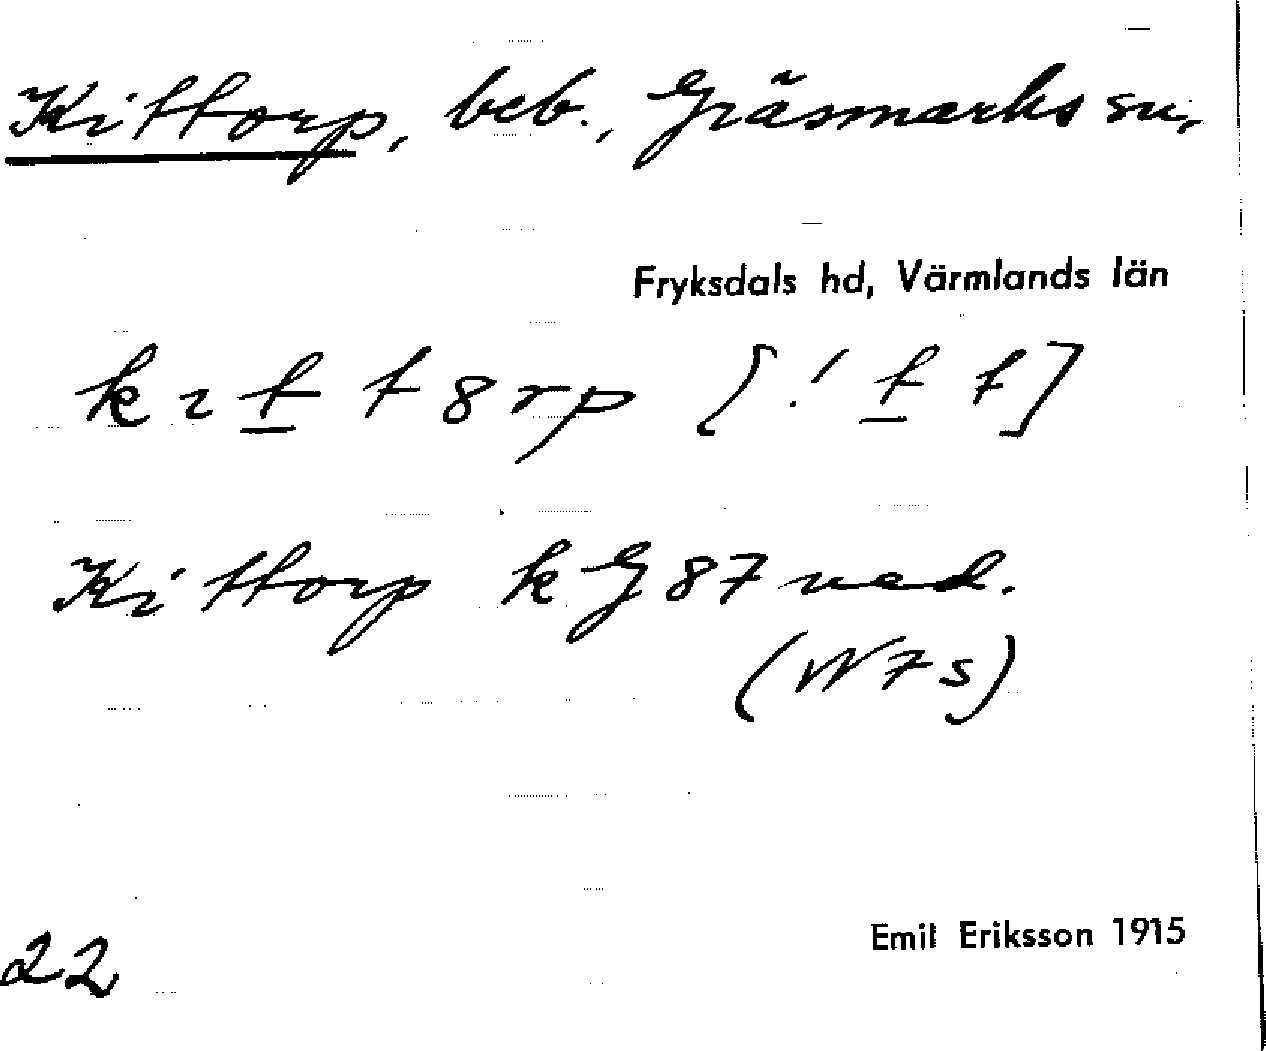 Kittorp, beb., Gräsmarks sn,
Fryksdals hd, Värmlands län
kıt t8rp [! t t]
Kittorp kG 87 ned.
(W7s)
Emil Eriksson 1915
22